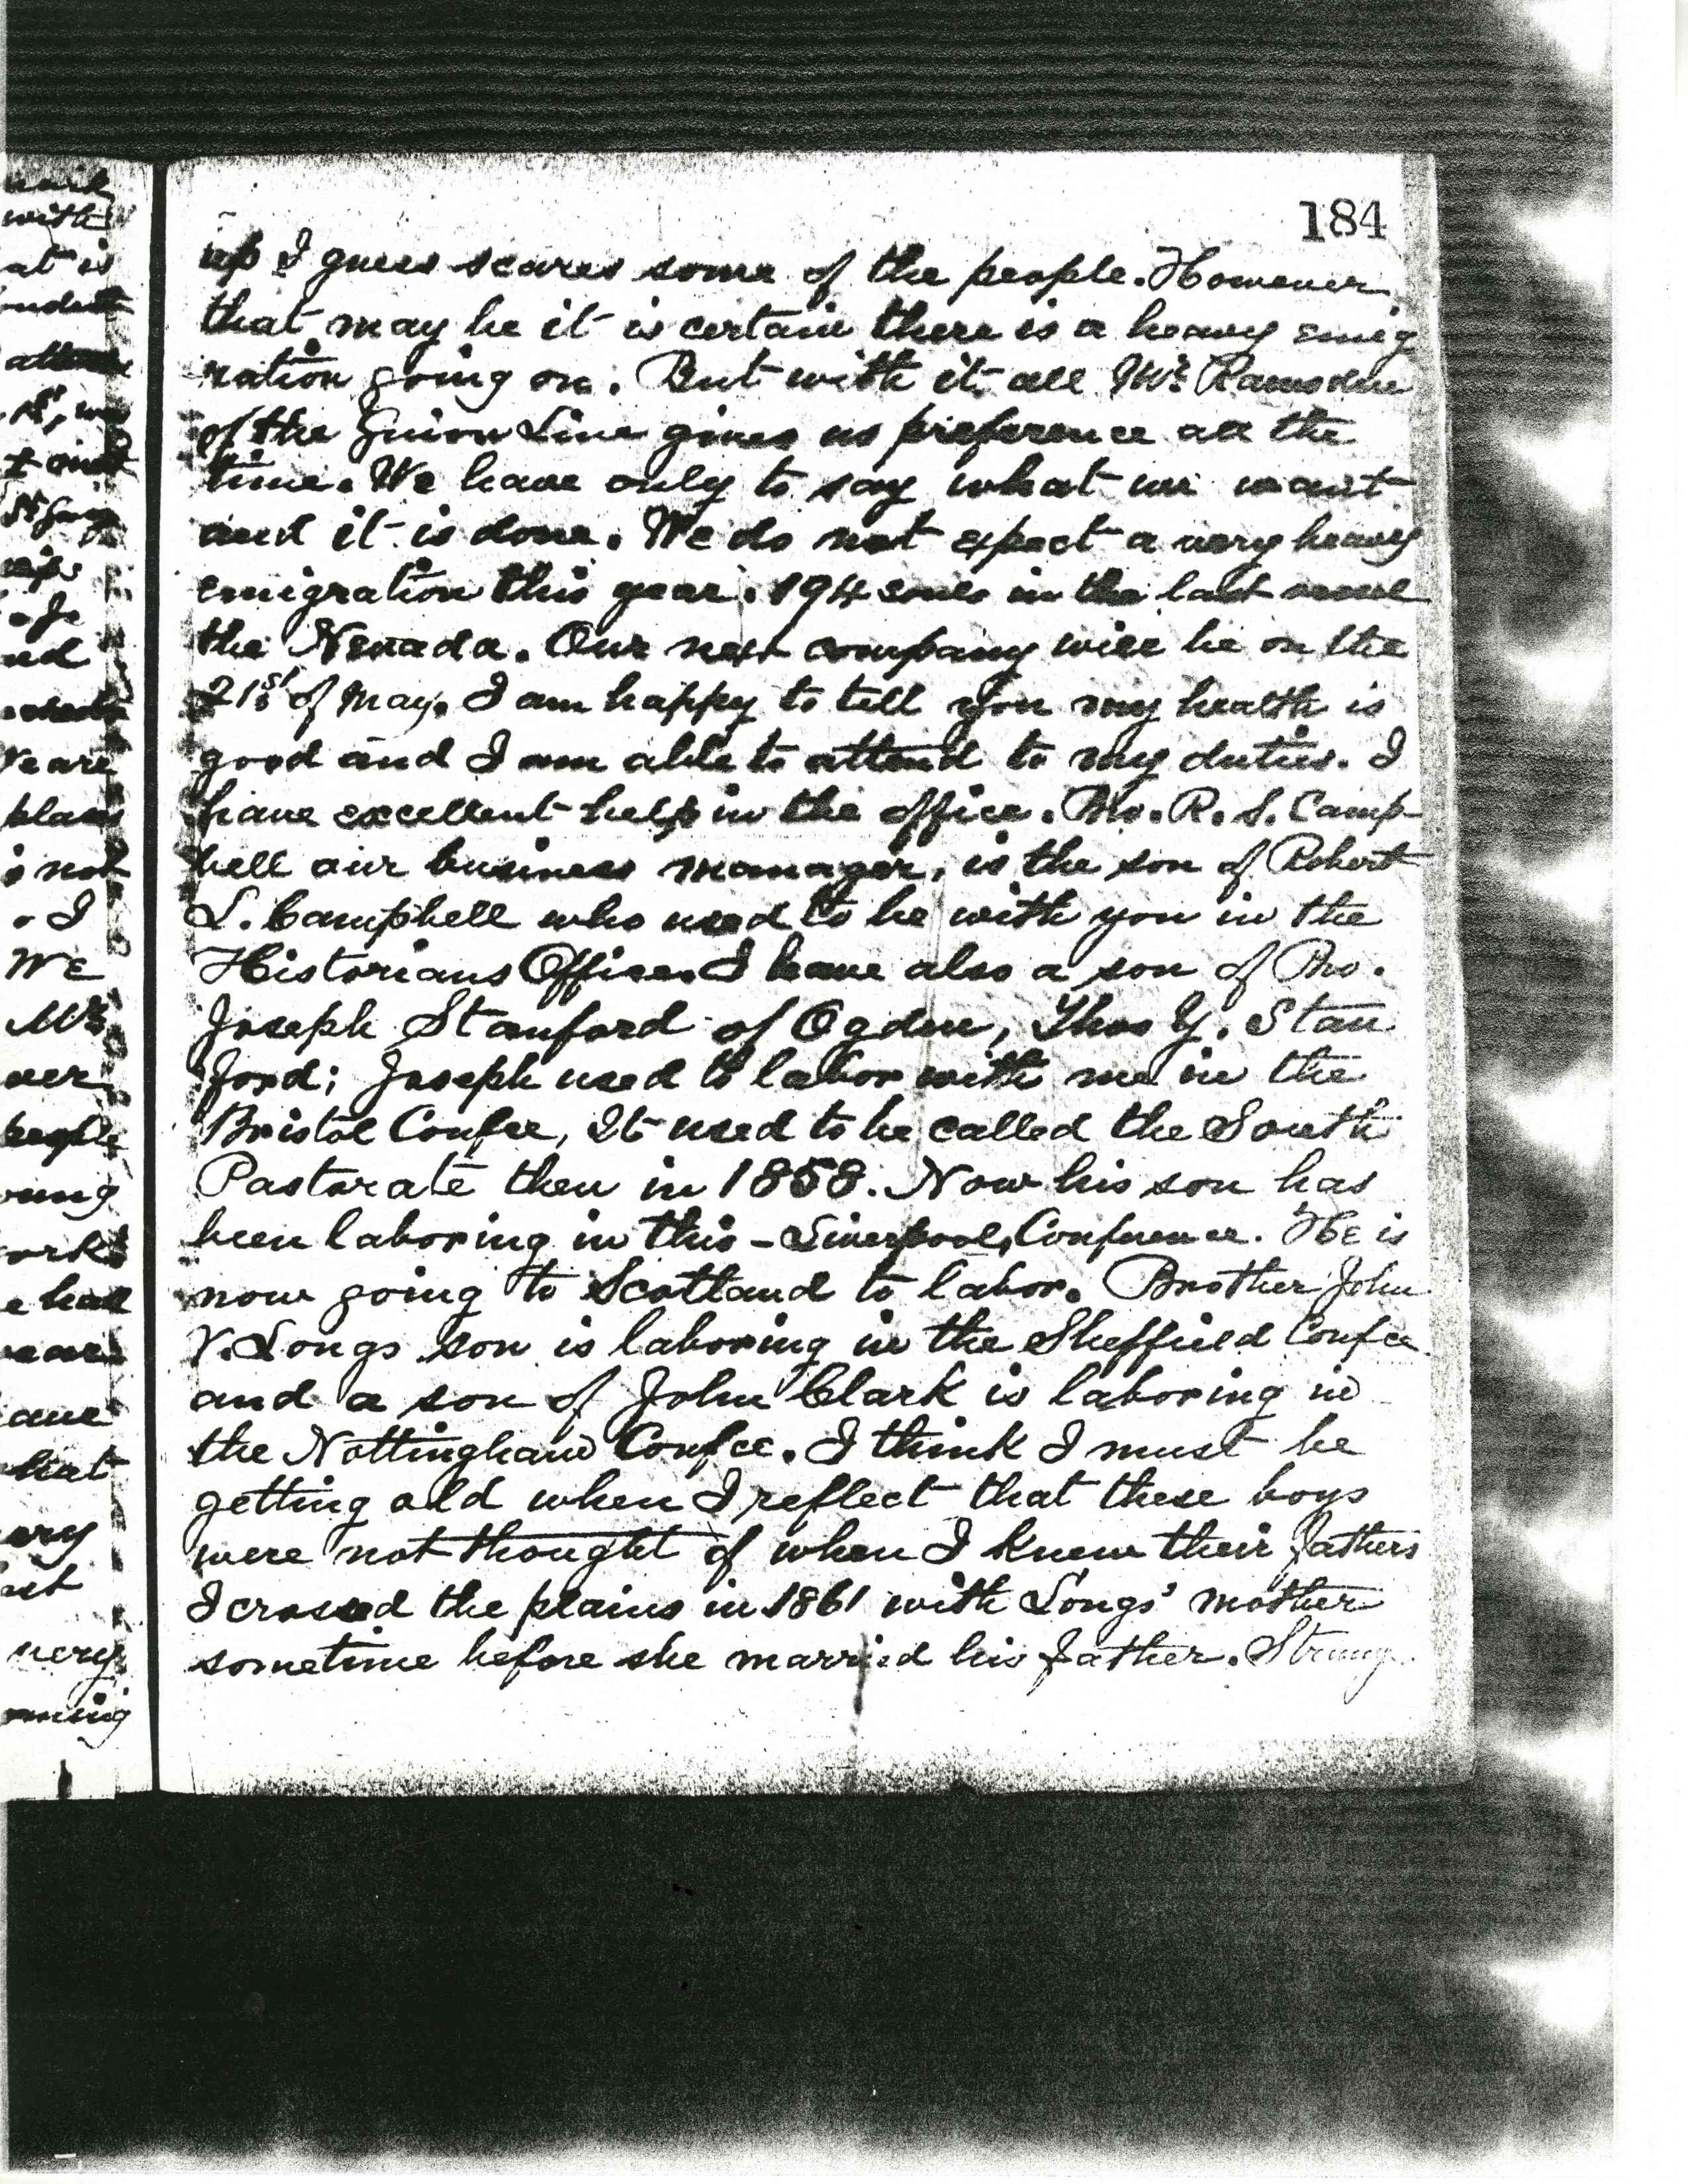 184
up I guess scares some of the people. However
that may be it is certain there is a heavy emig
ration going on. But with it all Mr. Ramsden
of the Guion Line gives us preference all the
time. We have only to say what we want
and it is done. We do not expect a very heavy
emigration this year. 194 souls in the last vessel
the Nevada. Our next company will be on the
21st of May. I am happy to tell you my health is
good and I am able to attend to my duties. I
have excellent help in the office. Bro. R. S. Camp-
bell our business manager, is the son of Robert
L. Campbell who used to be with you in the
Historians Office. I have also a son of Bro.
Joseph Stanford of Ogden, Thos Y. Stan
ford; Joseph used to labor with me in the
Bristol Confce, It used to be called the South
Pastorate then in 1858. Now his son has
been laboring in this - Liverpool, Conference. He is
now going to Scotland to labor. Brother John
V. Longs son is laboring in the Sheffield Confce
and a son of John Clark is laboring in
the Nottingham Confce. I think I must be
getting old when I reflect that these boys
were not thought of when I knew their fathers
I crossed the plains in 1861 with Longs' mother
sometime before she married his father. Strang
work
with
at is
plan
is not
. I
We
Mr.
ver
people
oung
ork
e had
ave
hat
ery
very